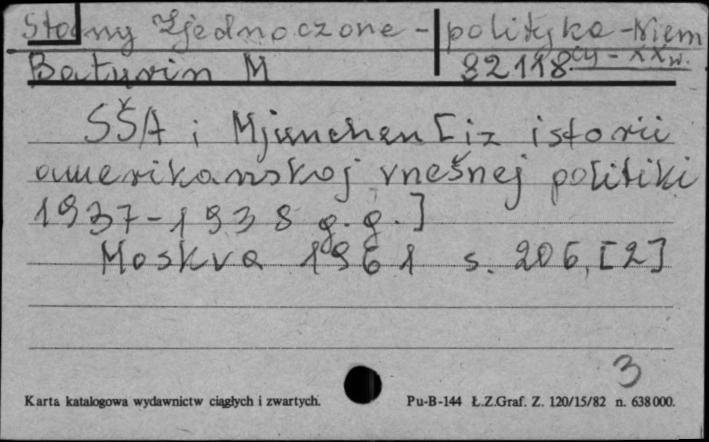 Stany Zjednoczone - polityka - Niem
Baturin M 32118 cy - XX w.
SŠA i Mjunchen [iz istorii
amerikanskoj vnešnej politiki
1937-1938 g.g.]
Moskva 1961 s. 206, [2]
3
Karta katalogowa wydawnictw ciągłych i zwartych. Pu-B-144 Ł.Z.Graf. Z. 120/15/82 n. 638000.